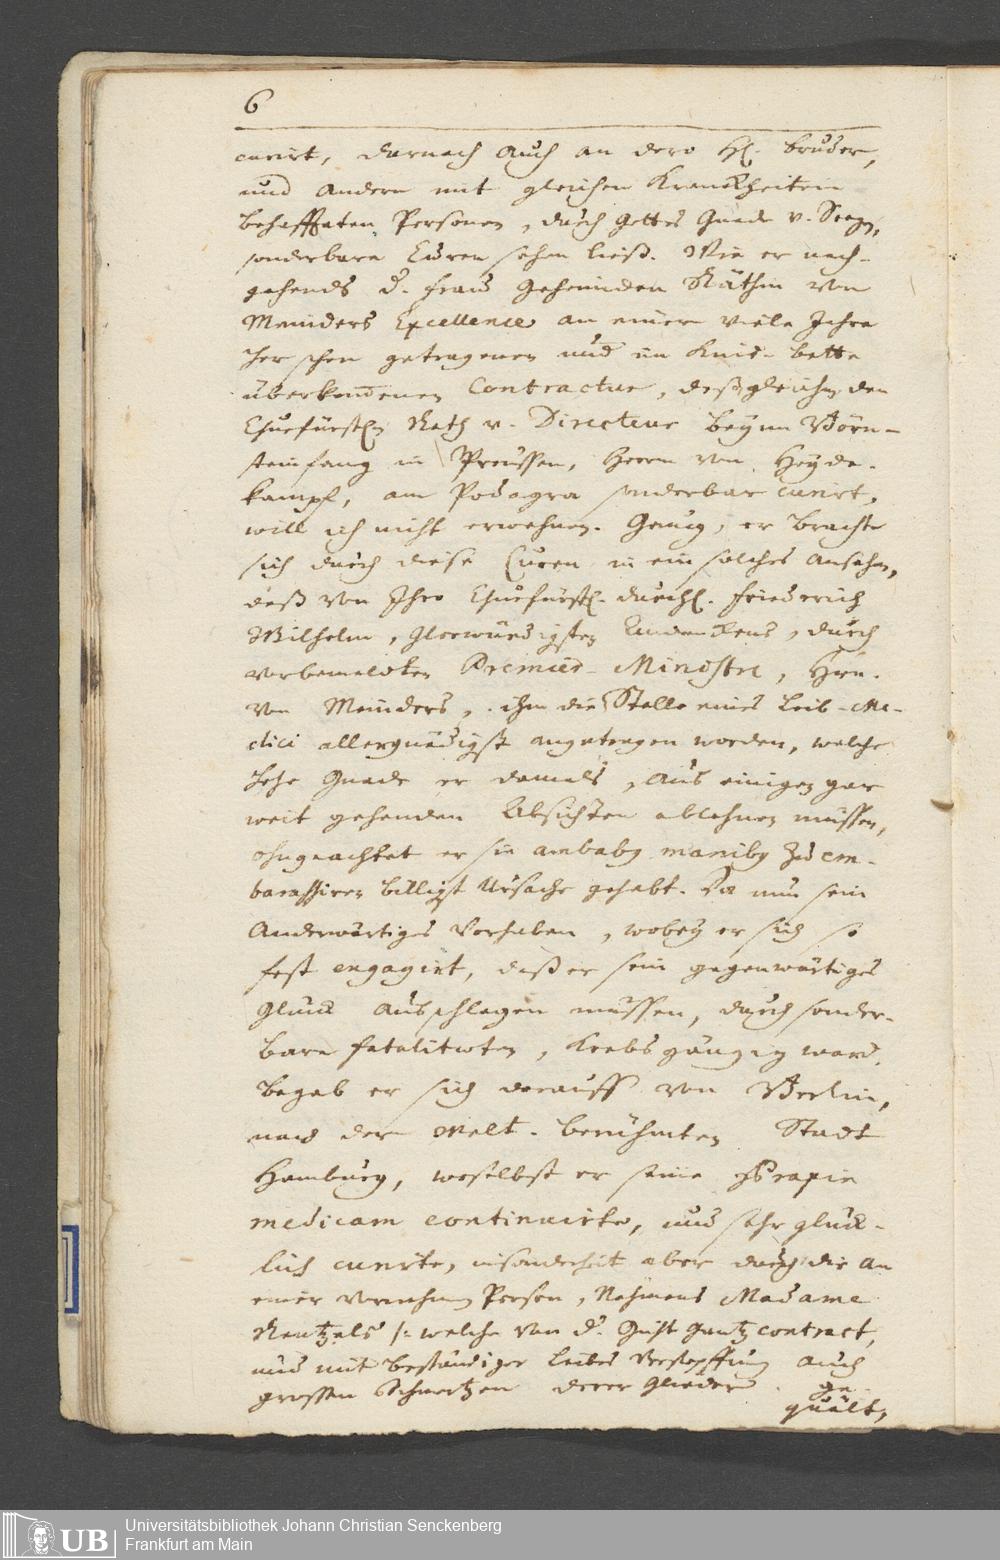 6
curirt, darnach auch an dero H. bruder,
und andern mit gleichen Kranckheiten
behafften Personen, durch Gottes Gnade v. Seegen,
sonderbare Curen sehen ließ. Wie er nach-
gehends d. Frau Geheimden Räthin von
Meinders Excellence an einem viele Jahre
her schon getragenen und im Kind-bette
überkom̄enen Contractur, deßgleichen den
Churfürstl. Rath v. Directeur beym Börn-
steinfang in Preussen, Herrn von Heyde-
kampf, am Podagra sonderbar curirt,
will ich nicht erwehnen. Genug, er brachte
sich durch diese Curen in ein solches Ansehen,
daß von Ihro Churfürstl. Durchl. Friederich
Wilhelm, Glorwürdigsten Andenckens, durch
vorbemeldten Premier-Ministre, Hrn.
von Meinders, ihm die Stelle eines Leib-Me-
dici allergnädigst angetragen worden, welche
hohe Gnade er damals, aus einigen gar
weit gehenden Absichten ablehnen müssen,
ohngeachtet er sie ambabus manibus zu em-
barassiren billigst Ursache gehabt. Da nun sein
Anderwärtiges Vorhaben, wobey er sich so
fest engagirt, daß er sein gegenwärtiges
Glück ausschlagen müssen, durch sonder-
bare fatalitæten, Krebsgängig ward,
begab er sich darauff von Berlin,
nach der Welt-berühmten Stadt
Hamburg, woselbst er seine praxin
medicam continuirte, und sehr glück-
lich curirte, insonderheit aber durch die an
einer vornehmen Person, Nahmens Madame
Rentzels /: welche von d. Gicht gantz contract,
und mit beständiger Leibes Verstopffung auch
grossen Schmertzen derer Glieder ge-
quält,
Universitätsbibliothek Johann Christian Senckenberg
Frankfurt am Main
UB